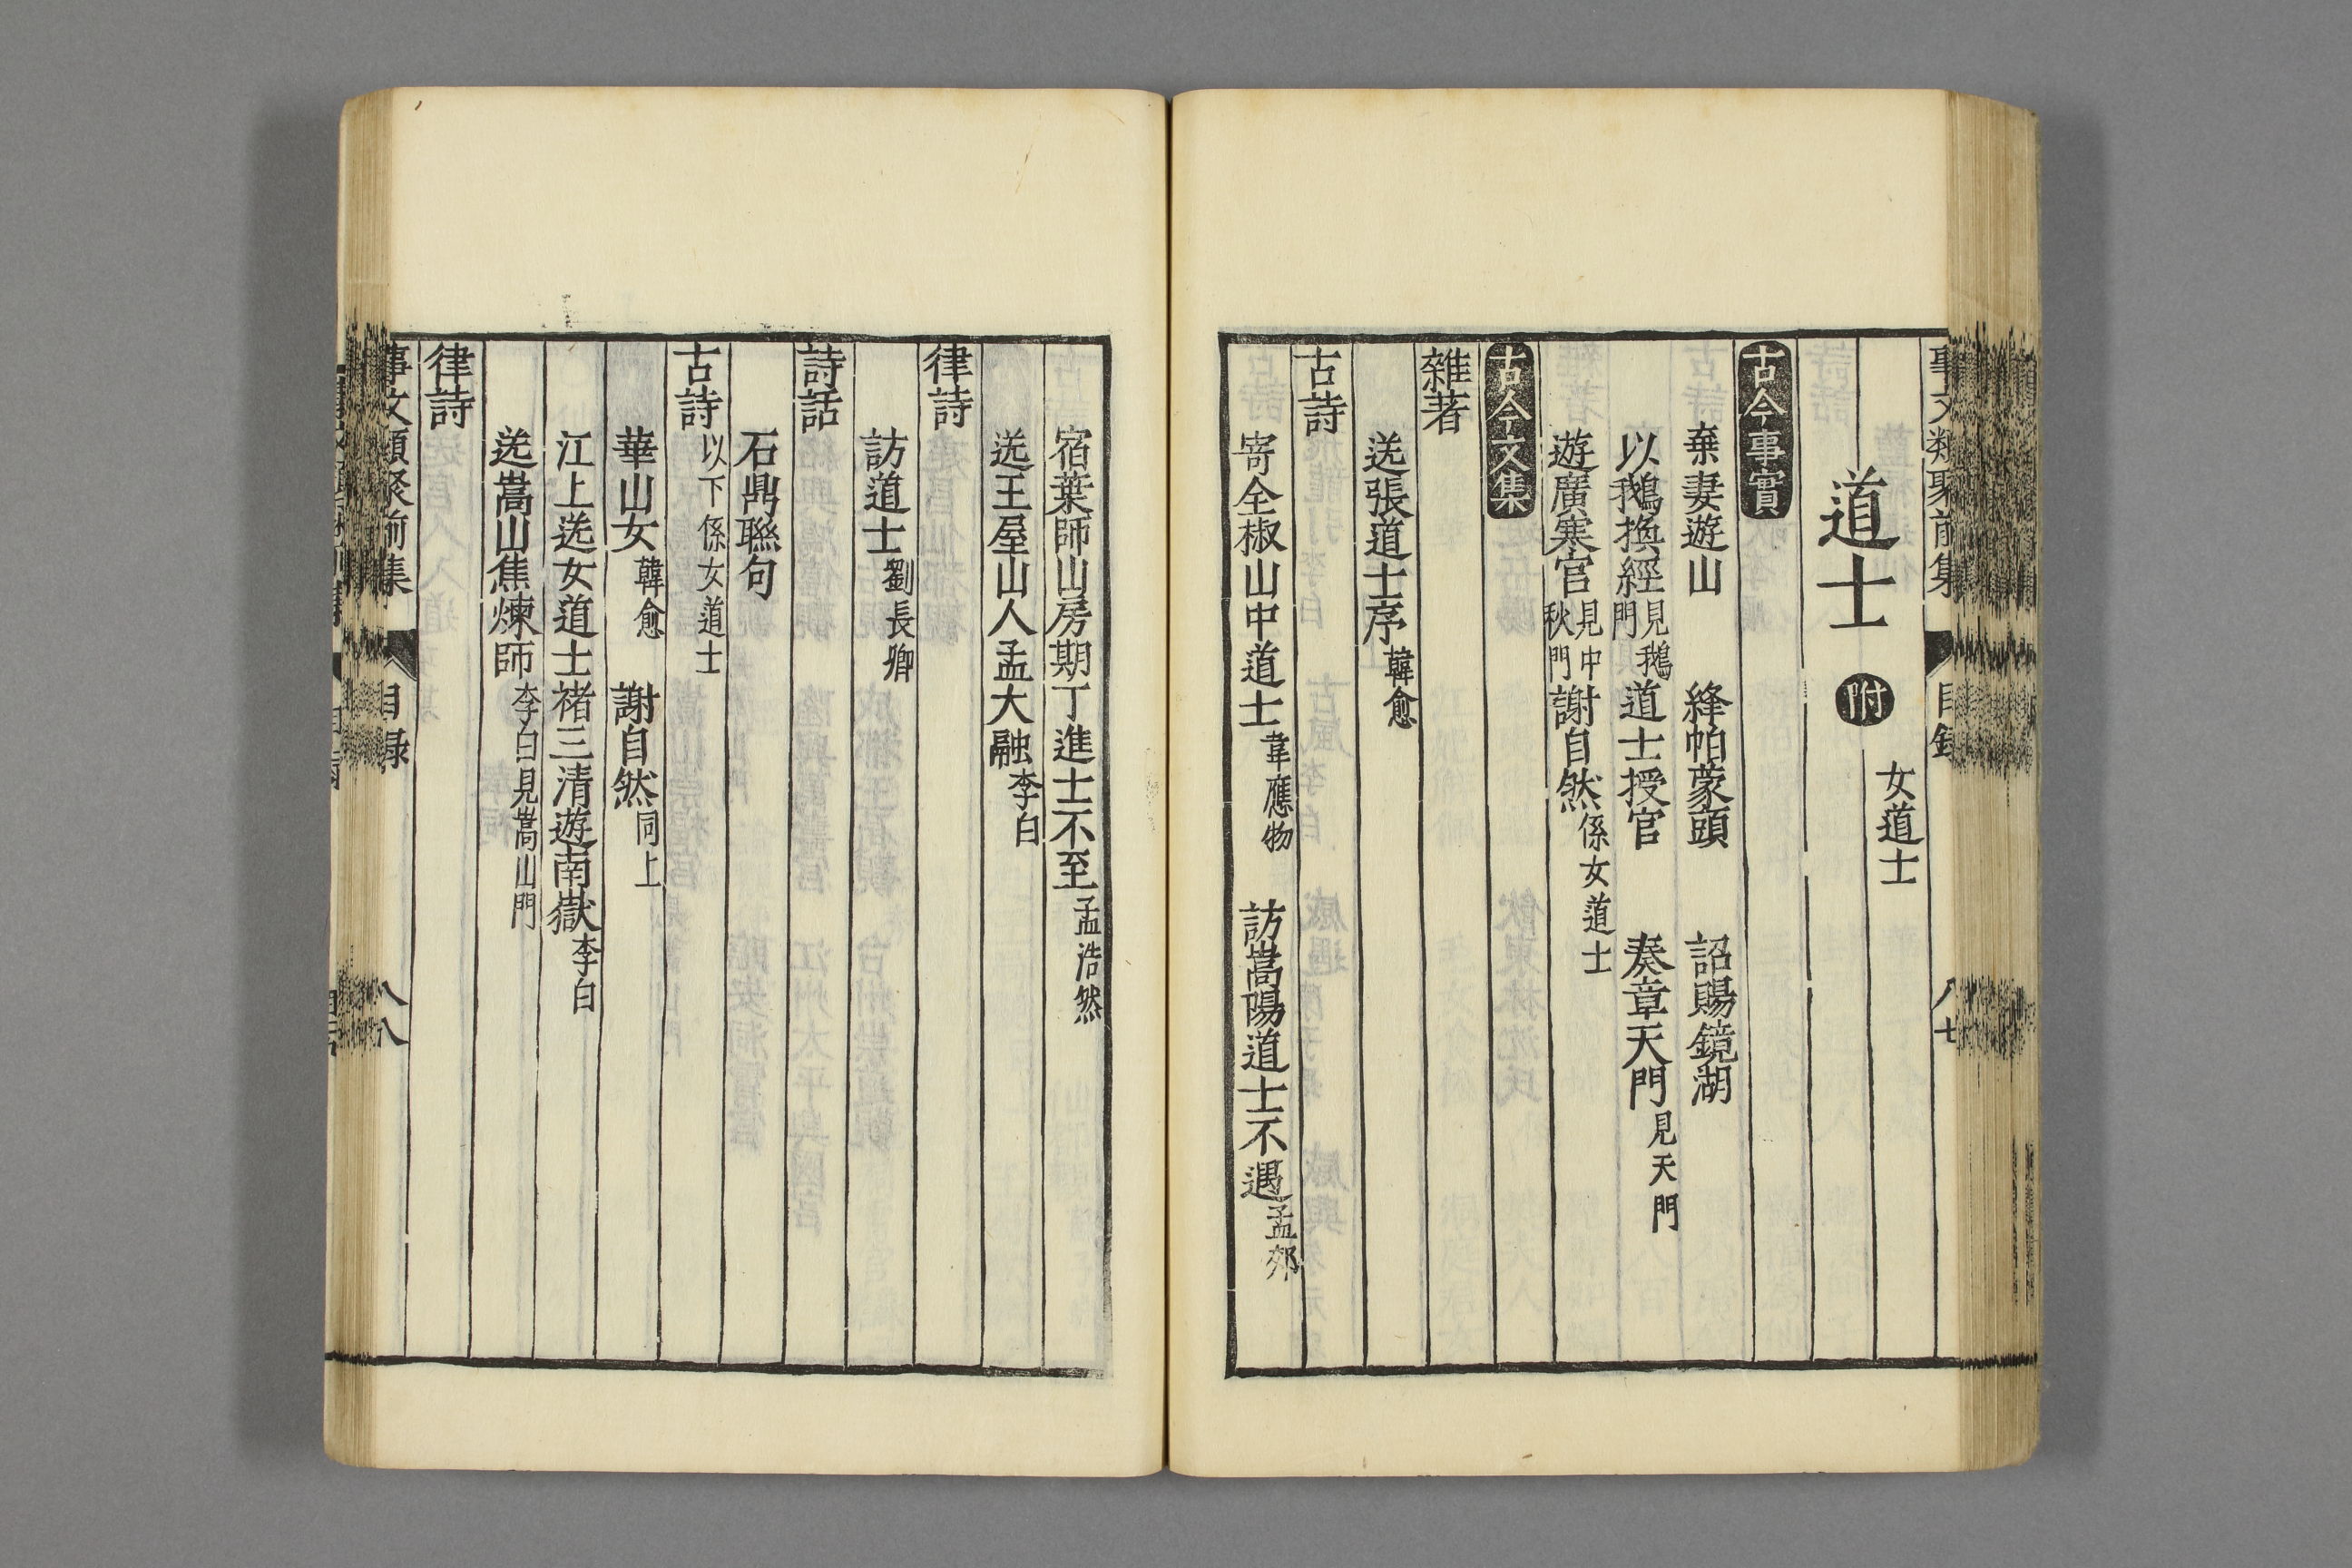 事文類聚前集 目錄 八七
道士 附 女道士
古今事實
棄妻遊山 絳帕蒙頭 詔賜鏡湖
以鵝換經見鵝門 道士授官 奏章天門見天門
遊廣寒宮見中秋門 謝自然係女道士
古今文集
雜著
送張道士序韓愈
古詩
寄全椒山中道士韋應物 訪嵩陽道士不遇孟郊
宿葉師山房期丁進士不至孟浩然
送王屋山人孟大融李白
律詩
訪道士劉長卿
詩話
石鼎聯句
古詩以下係女道士
華山女韓愈 謝自然同上
江上送女道士褚三清遊南嶽李白
送嵩山焦煉師李白見嵩山門
律詩
事文類聚前集 目錄 八八